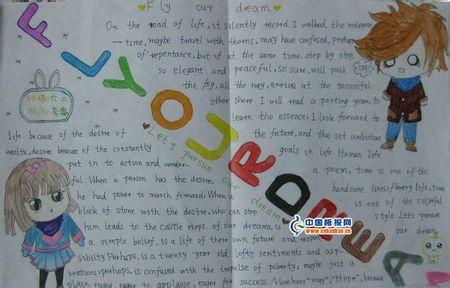 Fly out dream
FLYOURDREA
On the road of life, it silently record I walked the
time, maybe travel with thorns, may have confused, perhaps
of repentance, but if at the same time, step by step
so elegant and peaceful, so sure, will push
the fog, all the way, arrive at the successful
other shore I will read a parting year, to
learn the essence; I look forward to
the future, and this set ambitious
goals in life. Human life
a poem, time is one of the
handsome lines; flowery life, time
is one of the colorful
style. Let's pursue
our dream.
Let's pursue our dream
life because of the desire of
wealth, desire because of the constantly
put in to action and wonder-
ful. When a person has the desire, he
had power to march forward. When a
block of stone with the desire, who can stop
him leads to the castle steps of our dreams, is
a simple belief, is a life of their own future and
sibility Perhaps, is a twenty year old lofty sentiments and
Perhaps, is confused with the impulse of puberty, maybe just a
eager to applause, eager for success Numbers "may", "Hope", because
中国板报网
www.cnbanbao.cn